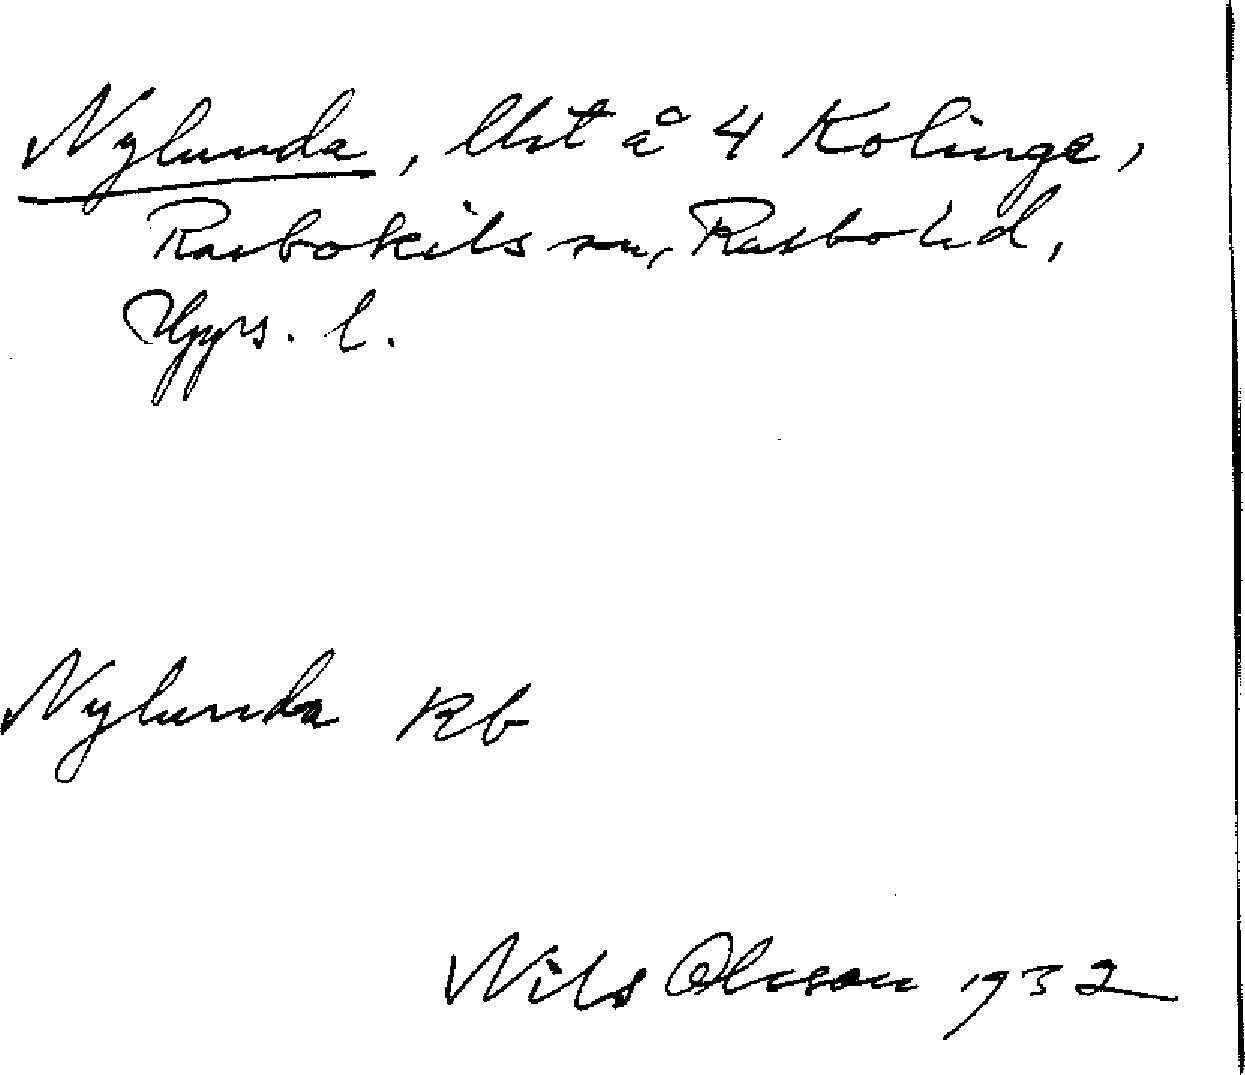 Nylunda, lht å 4 Kolinge,
Rasbokils sn, Rasbo hd,
Upps. l.
Nylunda Kb
Nils Olsson 1932